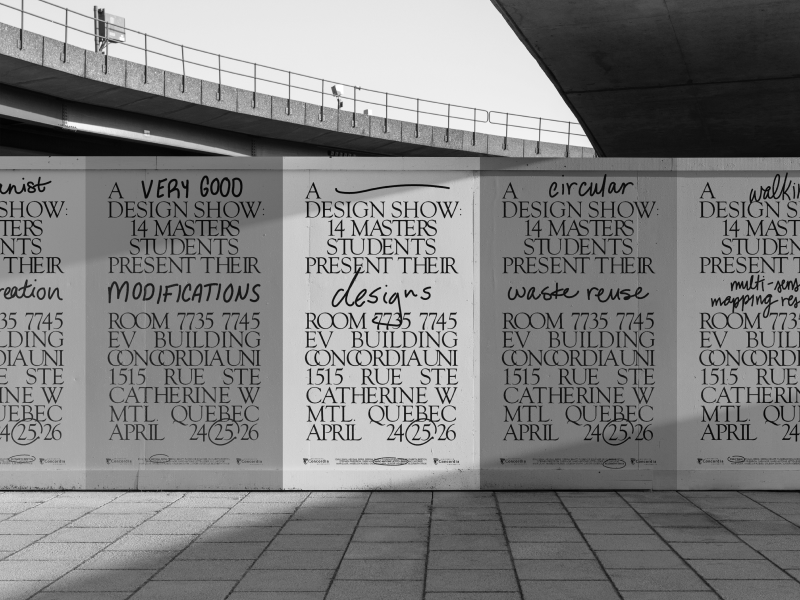 anist
SHOW:
ERS
NTS
THEIR
reation
35 7745
DING
DIAUNI
STE
NE W
UEBEC
24 25 26
A VERY GOOD
DESIGN SHOW:
14 MASTERS
STUDENTS
PRESENT THEIR
MODIFICATIONS
ROOM 7735 7745
EV BUILDING
CONCORDIAUNI
1515 RUE STE
CATHERINE W
MTL QUEBEC
APRIL 24 25 26
Concordia
A
DESIGN SHOW:
14 MASTERS
STUDENTS
PRESENT THEIR
designs
ROOM 7735 7745
EV BUILDING
CONCORDIAUNI
1515 RUE STE
CATHERINE W
MTL QUEBEC
APRIL 24 25 26
Concordia
A circular
DESIGN SHOW:
14 MASTERS
STUDENTS
PRESENT THEIR
waste reuse
ROOM 7735 7745
EV BUILDING
CONCORDIAUNI
1515 RUE STE
CATHERINE W
MTL QUEBEC
APRIL 24 25 26
Concordia
A walkin
DESIGN S
14 MAS
STUDE
PRESENT
multi-sens
mapping-res
ROOM 773
EV BUIL
CONCOR
1515 RU
CATHERI
MTL QU
APRIL 2